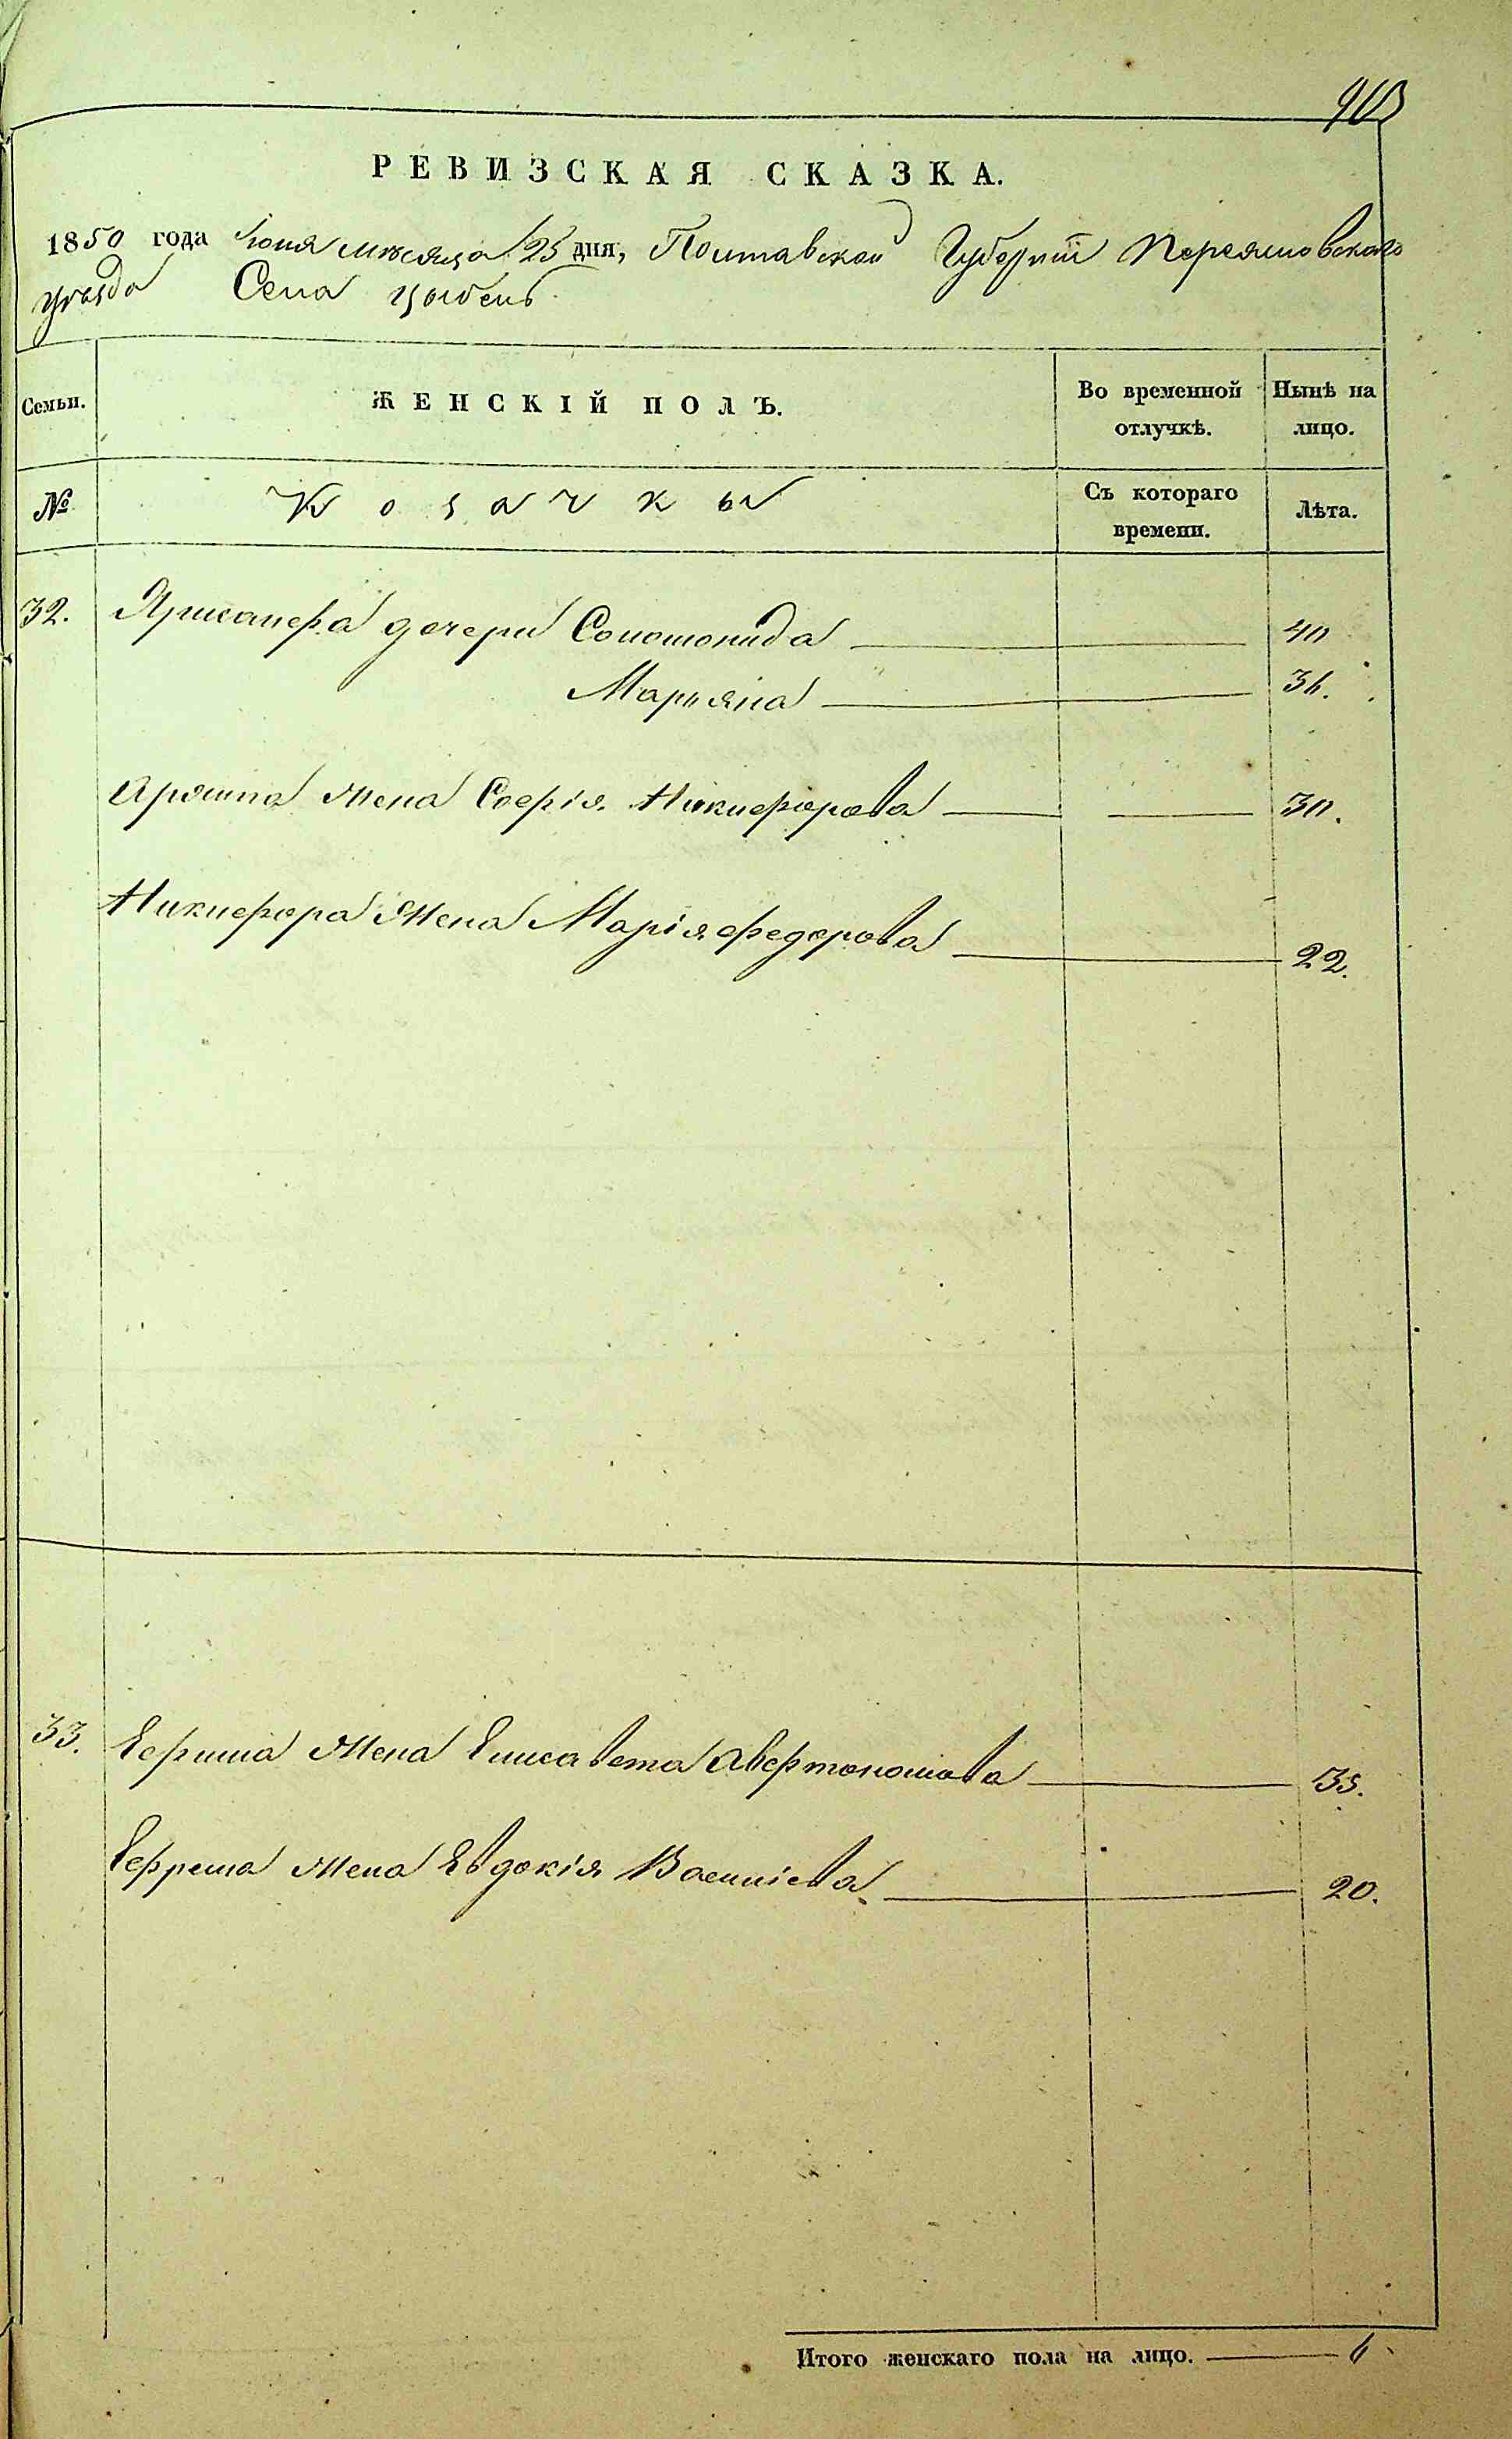 903
РЕВИЗСКАЯ СКАЗКА.
1850 года Іюня мѣсяца 25 дня, Полтавской Губерніи Переяславскаго
уѣзда Села Цыбель
Семьи. ЖЕНСКІЙ ПОЛЪ. Во временной отлучкѣ. Нынѣ на лицо.
№ Козачки Съ котораго времени. Лѣта.
32. дочери Соломонида 40
Марьяна 36.
жена Софія Никифорова 30.
Никифора жена Марія Федорова 22.
33. жена Елисавета 35.
Ефрема жена Евдокія Василіева 20.
Итого женскаго пола на лицо. 6